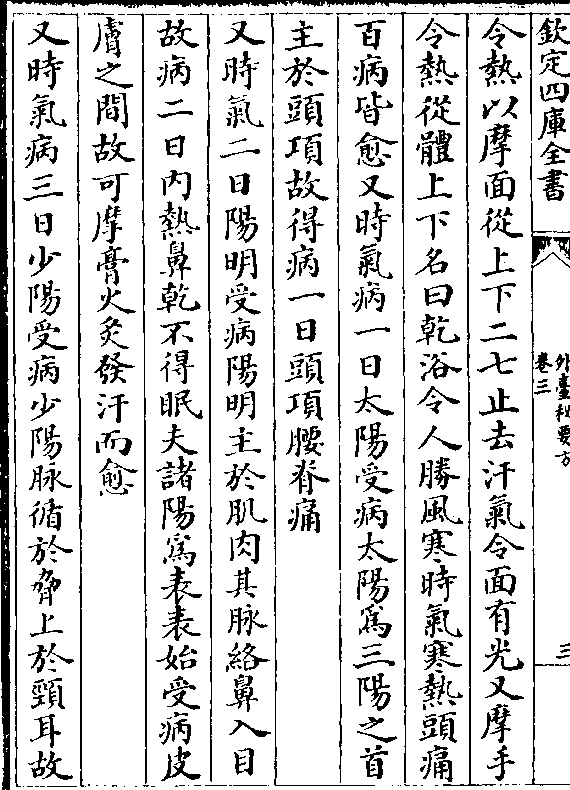 欽定四庫全書
外臺秘要方
卷三
三
令熱以摩面從上下二七止去汗氣令面有光又摩手
令熱從體上下名曰乾浴令人勝風寒時氣寒熱頭痛
百病皆愈又時氣病一日太陽受病太陽為三陽之首
主於頭項故得病一日頭項腰脊痛
又時氣二日陽明受病陽明主於肌肉其脉絡鼻入目
故病二日内熱鼻乾不得眠夫諸陽為表表始受病皮
膚之間故可摩膏火灸發汗而愈
又時氣病三日少陽受病少陽脉循於脅上於頸耳故